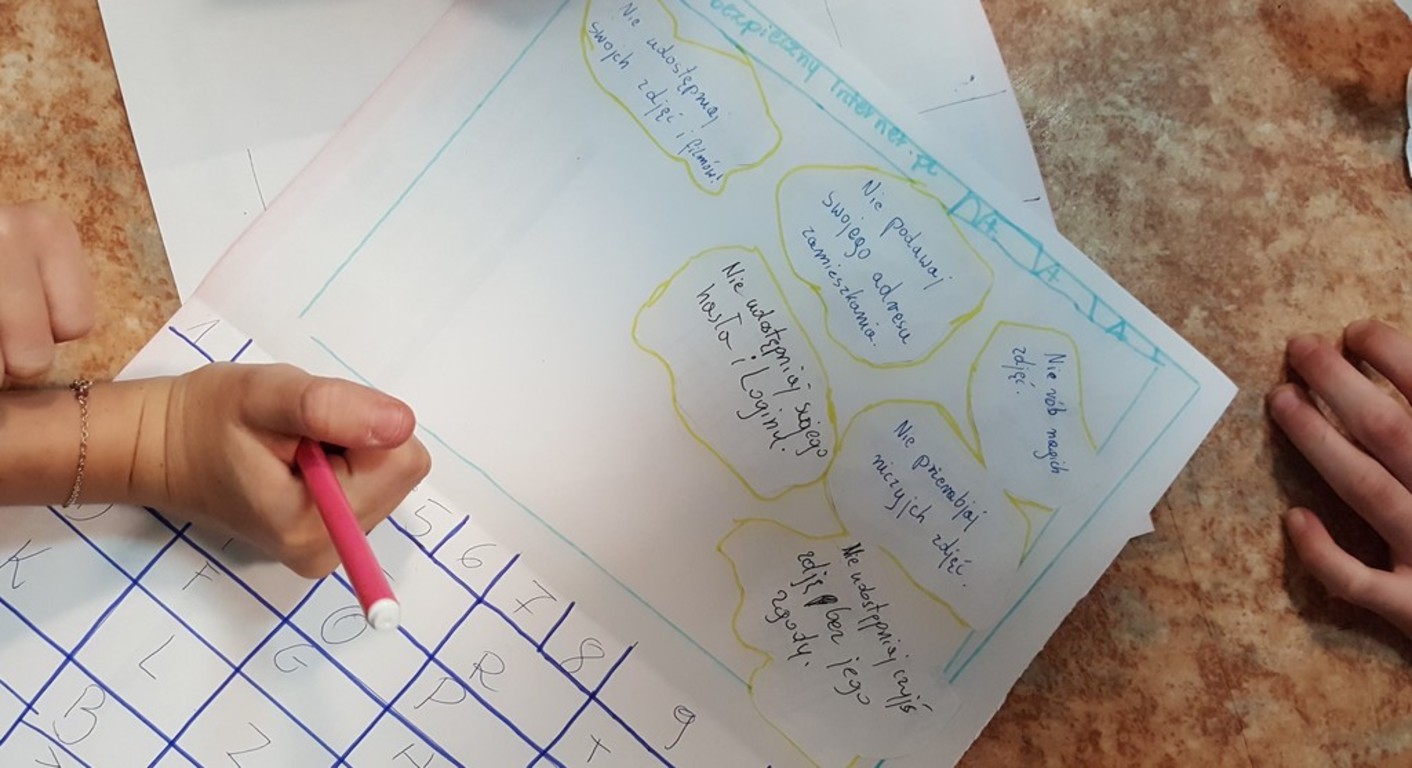 bezpieczny Internet.pl
Nie udostępniaj
swoich zdjęć i filmów!
Nie podawaj
swojego adresu
zamieszkania.
Nie udostępniaj swojego
hasła i Loginu.
Nie rób nagich
zdjęć.
Nie przerabiaj
niczyich zdjęć.
Nie udostępniaj czyjś
zdję bez jego
zgody.
1
5
6
7
8
9
K
F
O
R
L
G
P
T
B
Z
H